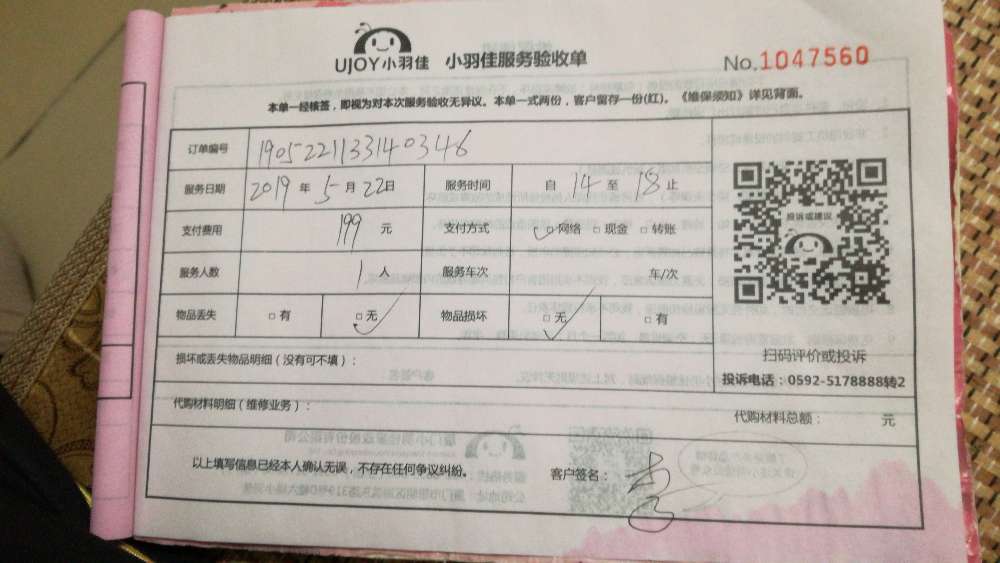 UJOY小羽佳 小羽佳服务验收单 No.1047560
本单一经核签，即视为对本次服务验收无异议。本单一式两份，客户留存一份(红)。《维保须知》详见背面。
订单编号 190522113314 0346
服务日期 2019 年 5 月 22 日 服务时间 自 14 至 18 止
支付费用 199 元 支付方式 网络 现金 转账
服务人数 1 人 服务车次 车/次
物品丢失 有 无 物品损坏 无 有
投诉或建议
扫码评价或投诉
投诉电话：0592-5178888转2
损坏或丢失物品明细（没有可不填）：
代购材料明细（维修业务）： 代购材料总额： 元
以上填写信息已经本人确认无误，不存在任何争议纠纷。 客户签名：